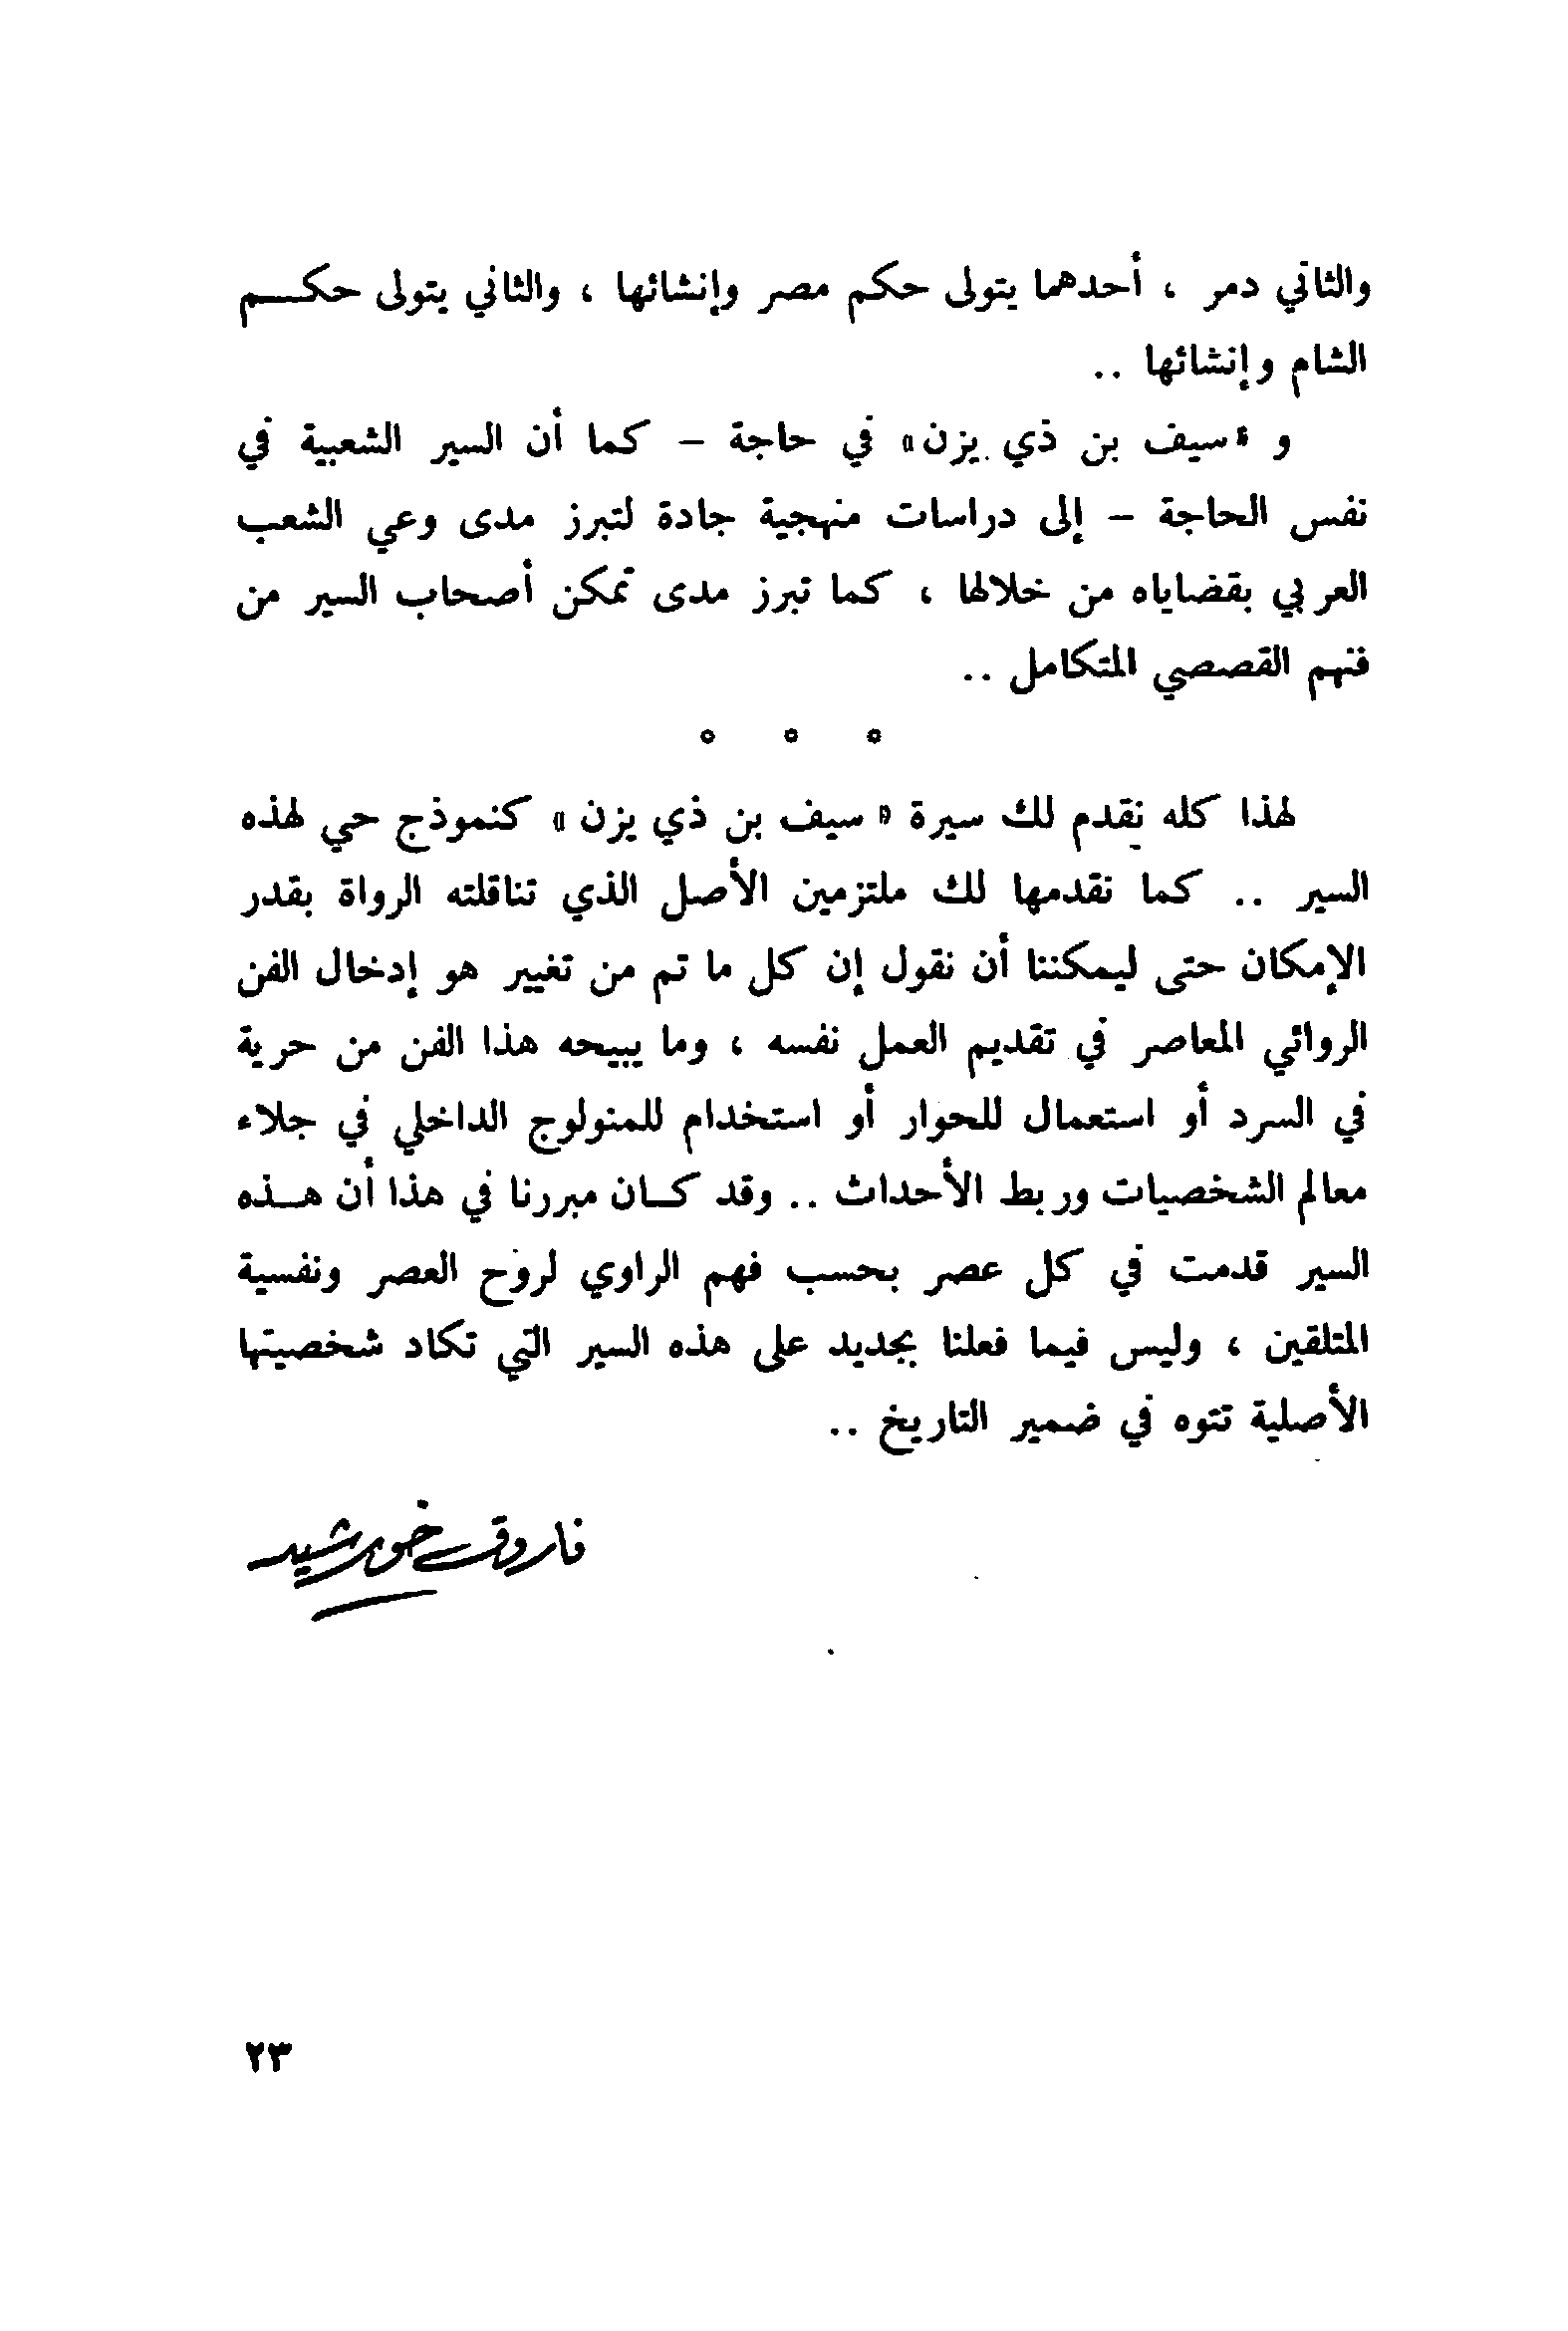 والثاني دمر ، أحدهما يتولى حكم مصر وإنشائها ، والثاني يتولى حكـــم
الشام وإنشائها ..
و « سيف بن ذي يزن » في حاجة – كما أن السير الشعبية في
نفس الحاجة – إلى دراسات منهجية جادة لتبرز مدى وعي الشعب
العربي بقضاياه من خلالها ، كما تبرز مدى تمكن أصحاب السير من
فنهم القصصي المتكامل ..
* * *
لهذا كله نقدم لك سيرة « سيف بن ذي يزن » كنموذج حي لهذه
السير .. كما نقدمها لك ملتزمين الأصل الذي تناقلته الرواة بقدر
الإمكان حتى ليمكننا أن نقول إن كل ما تم من تغيير هو إدخال الفن
الروائي المعاصر في تقديم العمل نفسه ، وما يبيحه هذا الفن من حرية
في السرد أو استعمال للحوار أو استخدام للمنولوج الداخلي في جلاء
معالم الشخصيات وربط الأحداث .. وقد كــان مبررنا في هذا أن هــذه
السير قدمت في كل عصر بحسب فهم الراوي لروح العصر ونفسية
المتلقين ، وليس فيما فعلنا بجديد على هذه السير التي تكاد شخصيتها
الأصلية تتوه في ضمير التاريخ ..
فاروق خورشيد
٢٣